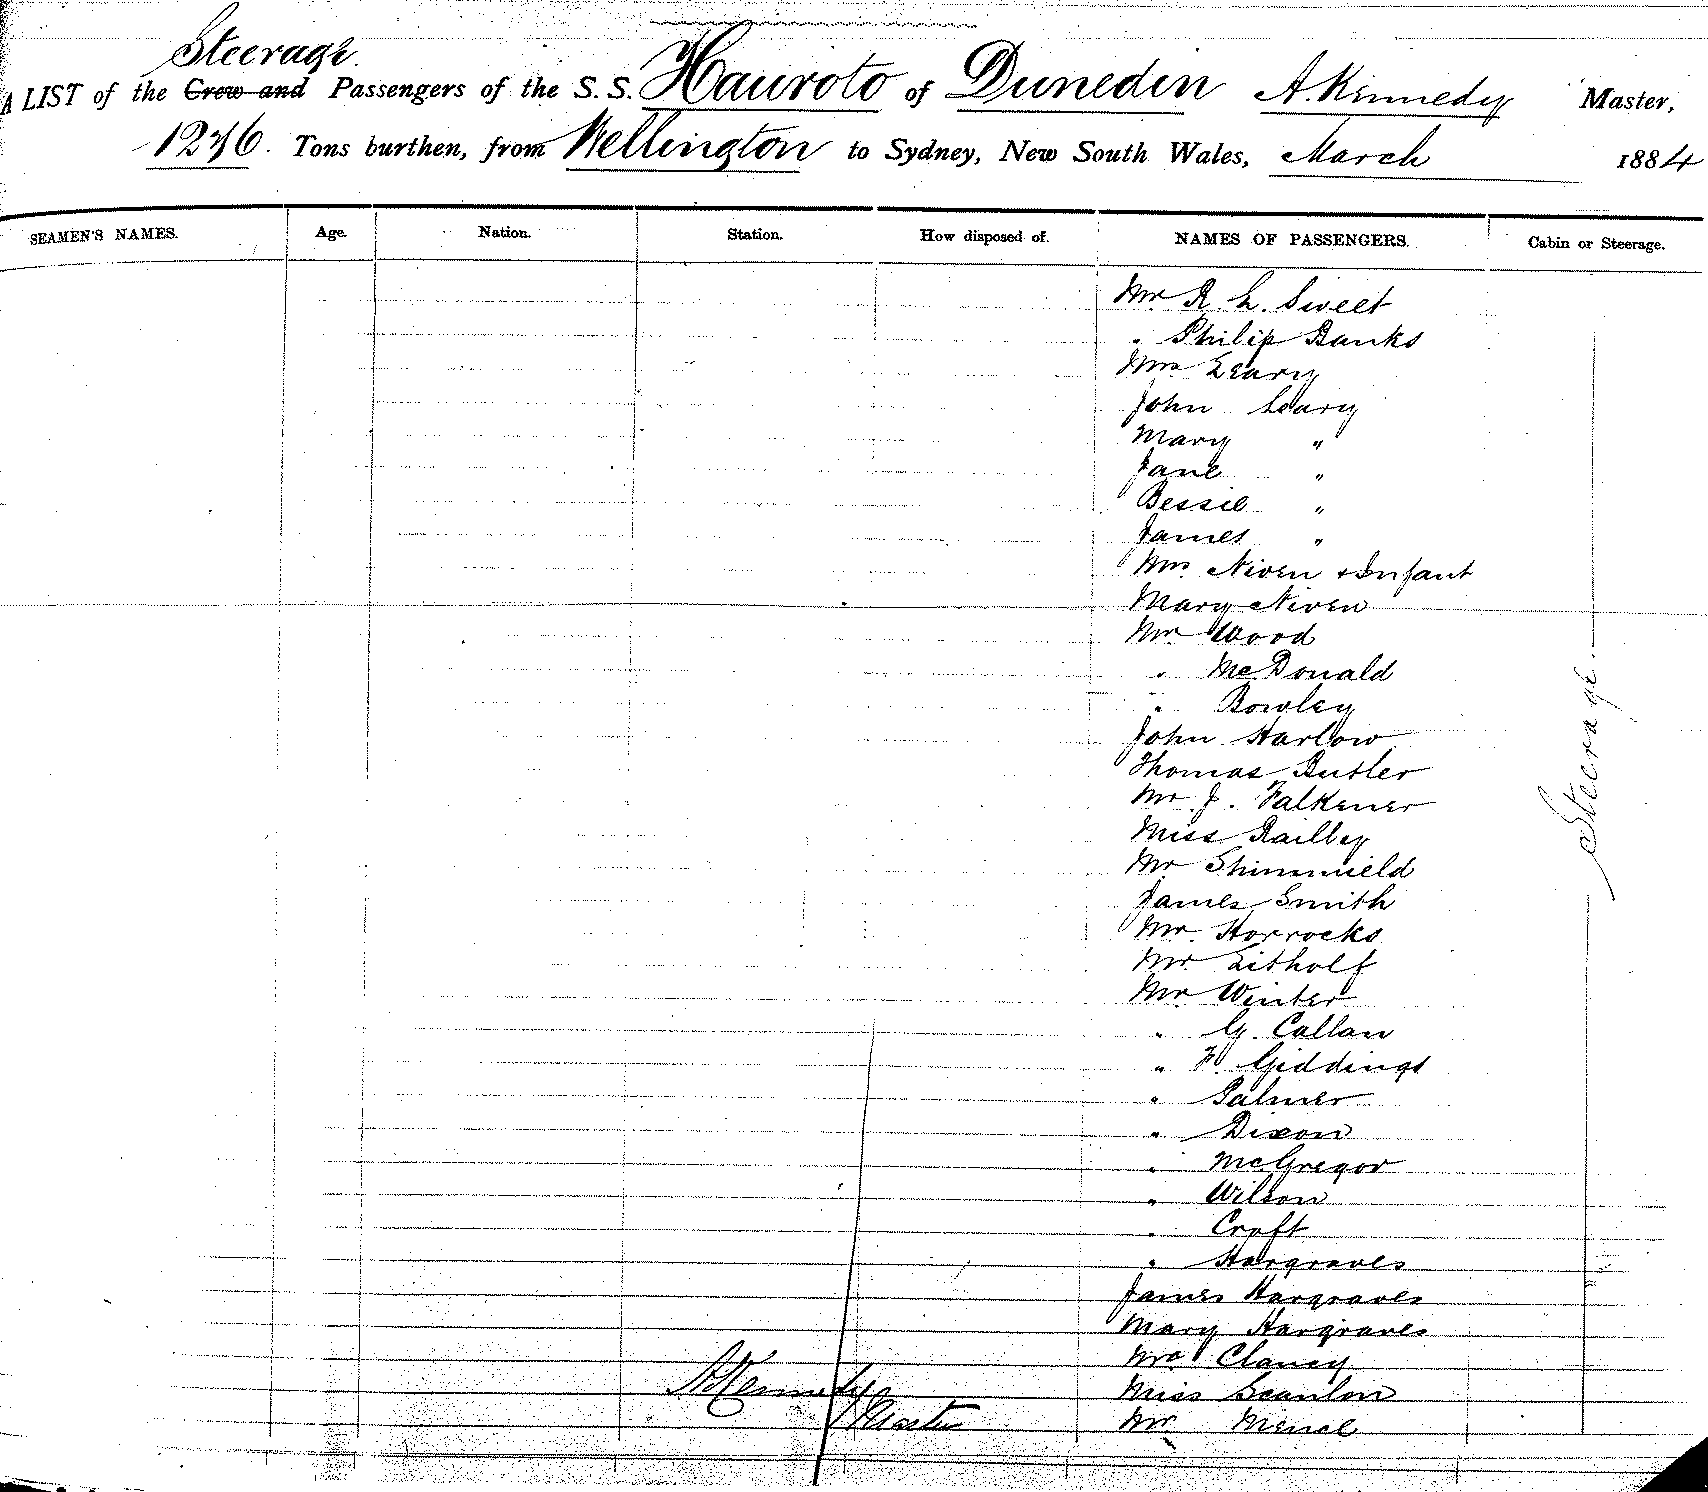 Steerage.
A LIST of the Crew and Passengers of the S.S. Hauroto of Dunedin A. Kennedy Master,
1276. Tons burthen, from Wellington to Sydney, New South Wales, March 1884
SEAMEN'S NAMES. Age. Nation. Station. How disposed of. NAMES OF PASSENGERS. Cabin or Steerage.
Mr R. L. Sweet
" Philip Banks
Mrs Leary
John Leary
Mary "
Jane "
Bessie "
James "
Mrs Niven & Infant
Mary Niven
Mr Wood
" McDonald
" Bowley
John Harlow
Thomas Butler
Mr J. Falkener
Miss Railley
Mr Shimmield
James Smith
Mr. Horrocks
Mr. Litholf
Mr Winter
" G. Callan
" F. Giddings
" Palmer
" Dixon
" McGregor
" Wilson
" Croft
" Hargraves
James Hargraves
Mary Hargraves
Mrs Clancy
Miss Scanlon
Mr
Steerage
A Kennedy
Master